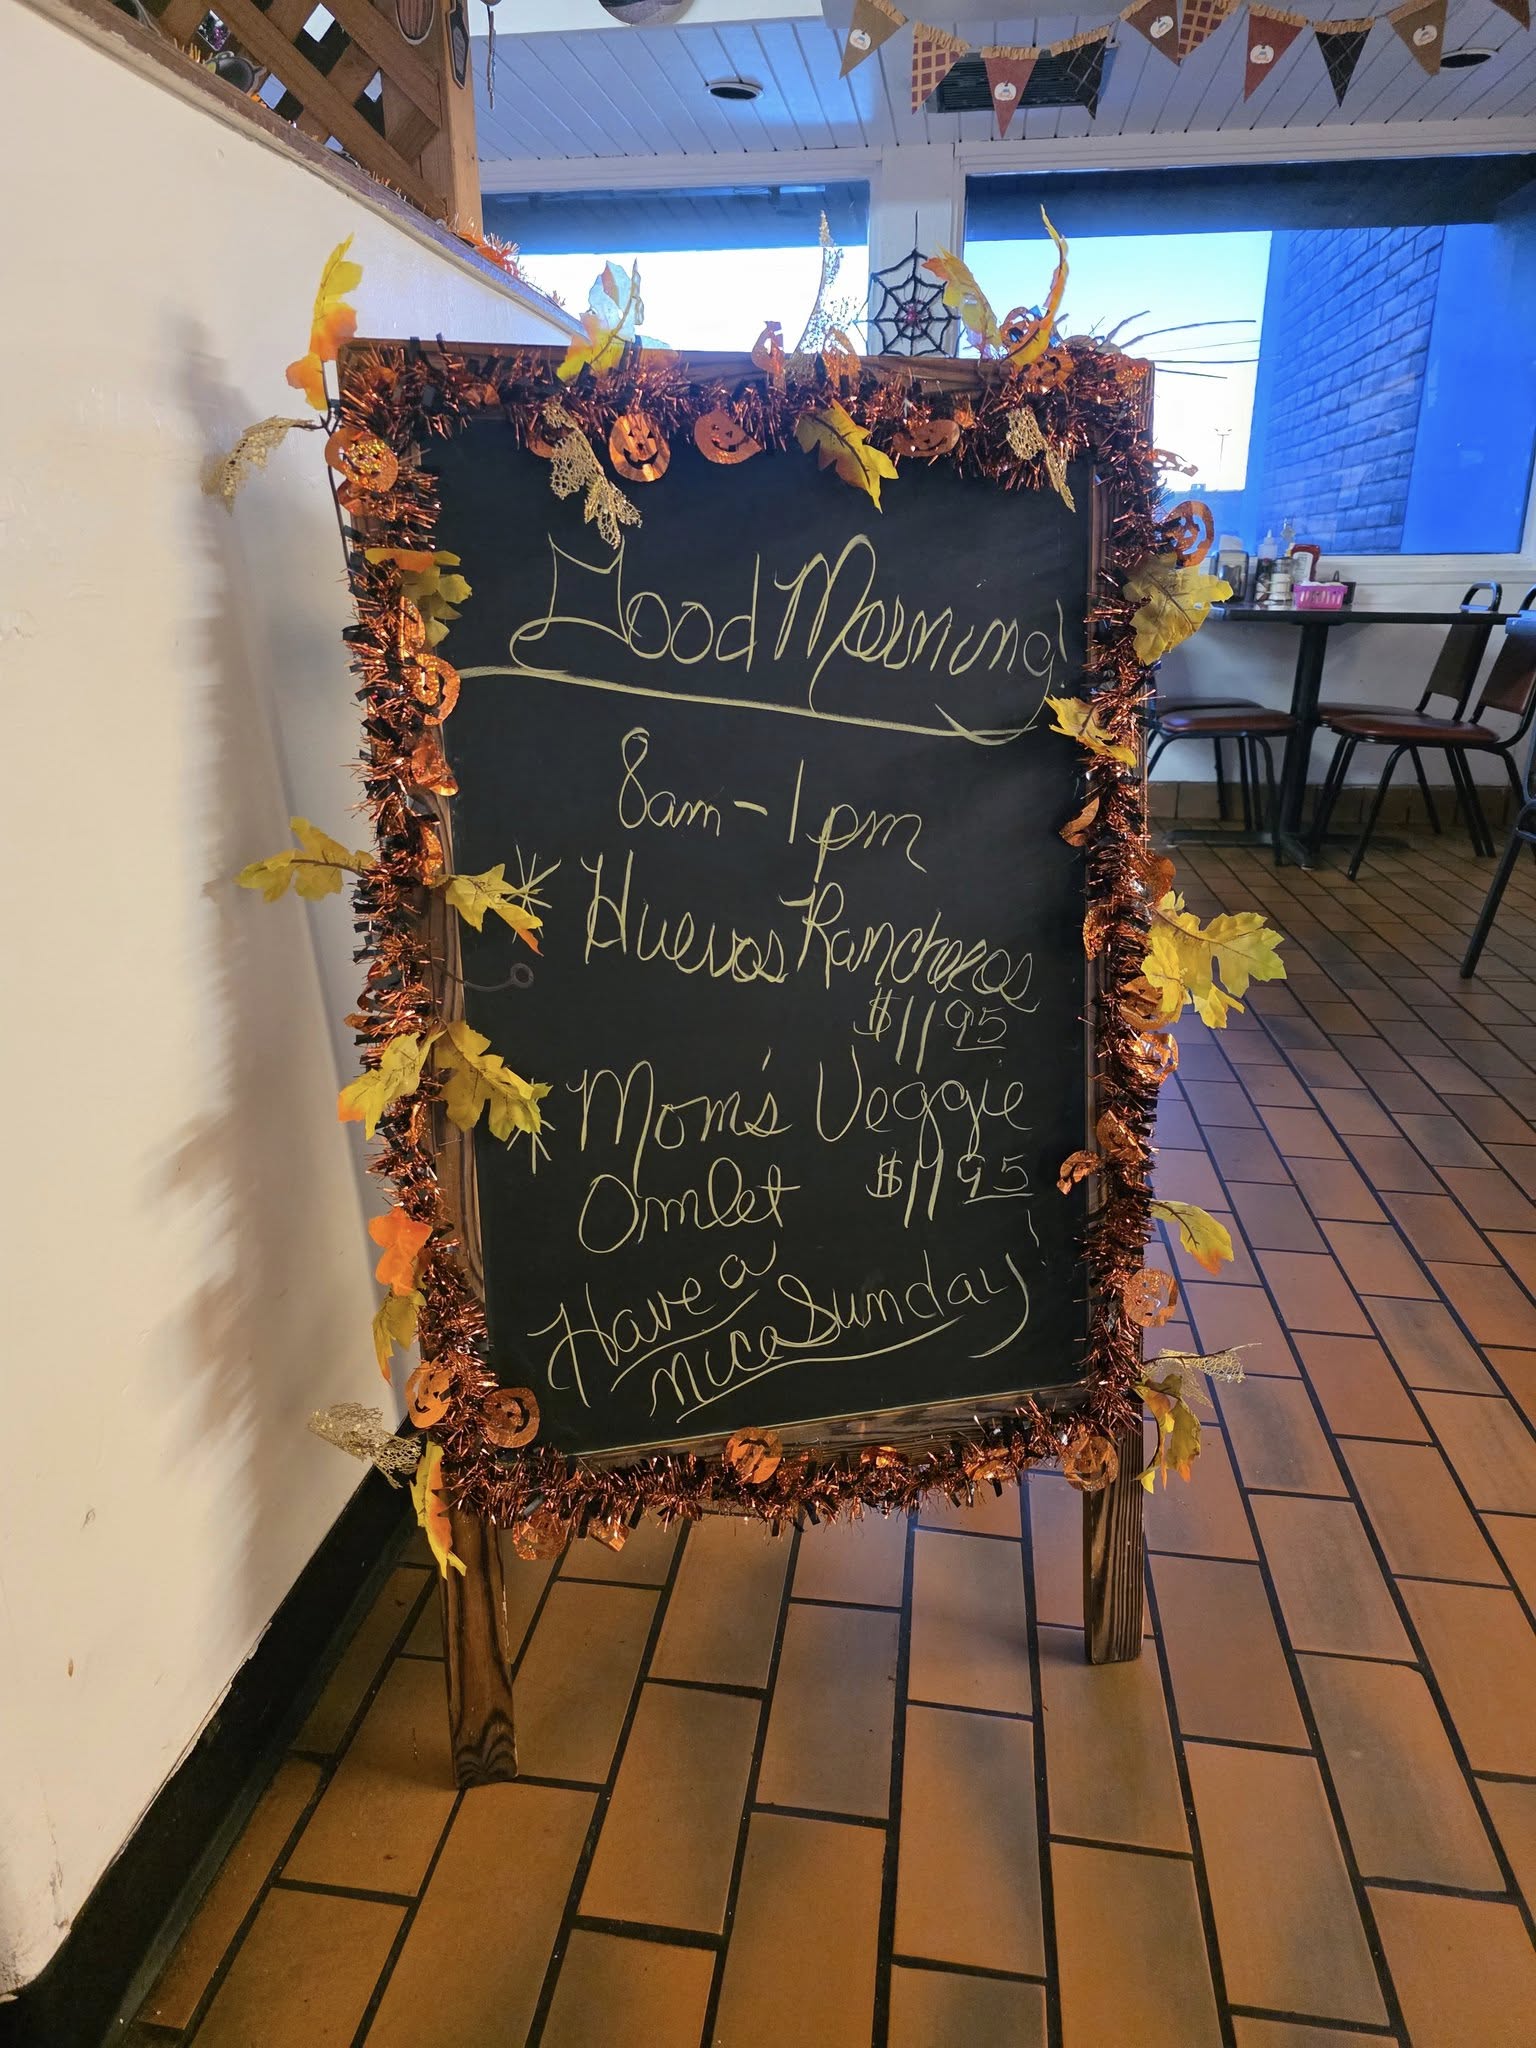 Good Morning!
8am - 1pm
* Huevos Rancheros
$11.95
* Mom's Veggie
Omlet $11.95
Have a
nice Sunday!